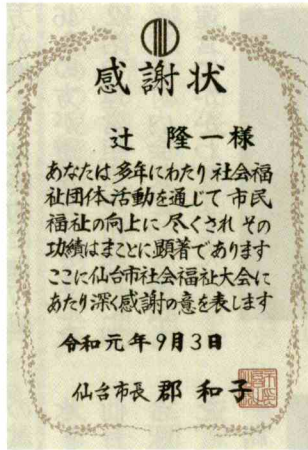 感謝状
辻 隆一様
あなたは多年にわたり社会福
祉団体活動を通じて市民
福祉の向上に尽くされその
功績はまことに顕著であります
ここに仙台市社会福祉大会に
あたり深く感謝の意を表します
令和元年9月3日
仙台市長 郡 和子